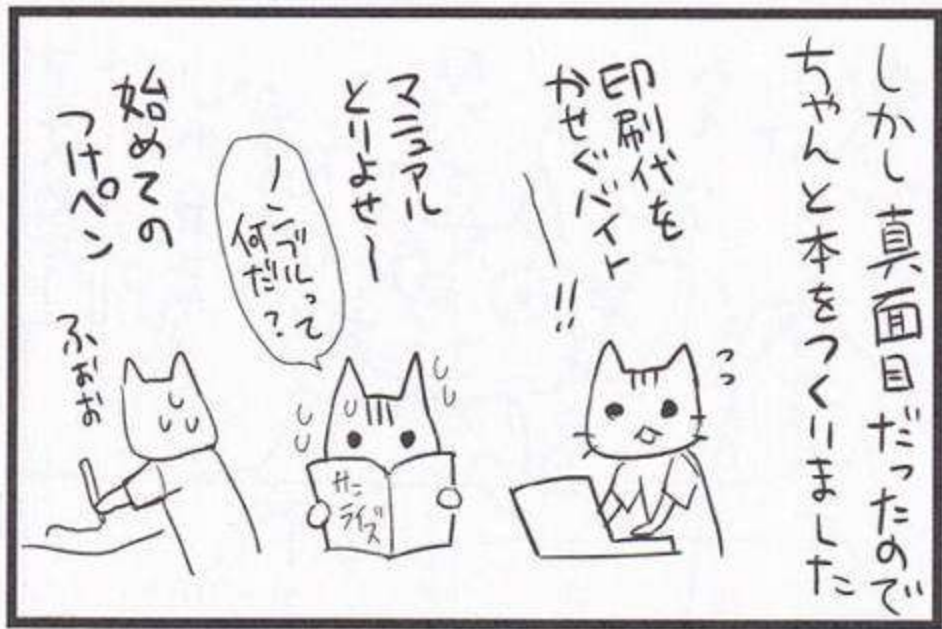 しかし真面目だったので
ちゃんと本をつくりました
印刷代を
かせぐバイトー!!
マニュアル
とりよせ〜
ノンブルって
何だ?
サン
ライズ
始めての
つけペン
ふぉぉ